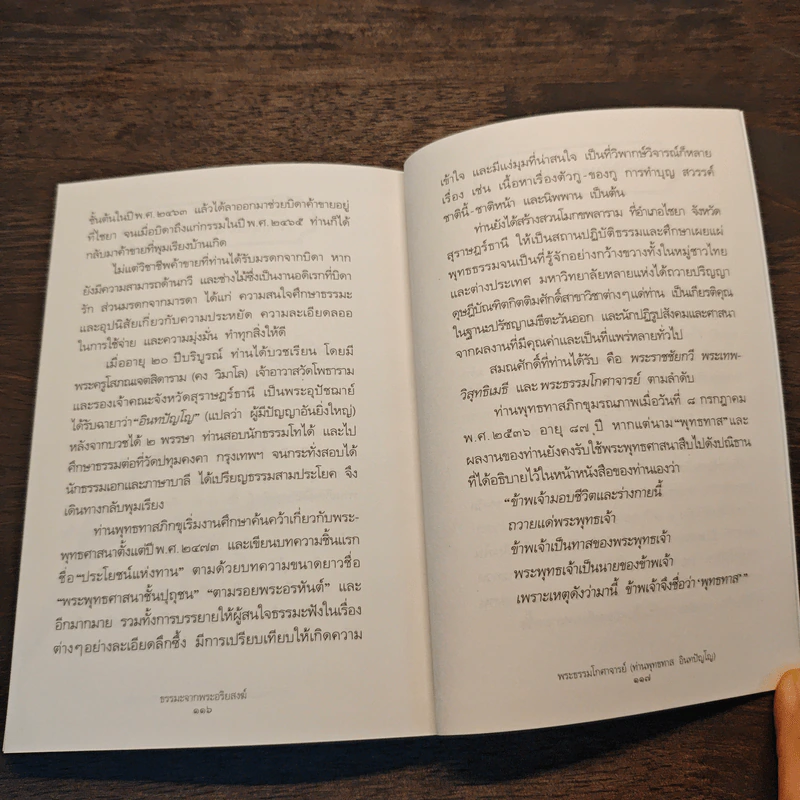 ชั้นต้นในปี พ.ศ. ๒๔๖๓ แล้วได้ลาออกมาช่วยบิดาค้าขายอยู่
ที่ไชยา จนเมื่อบิดาถึงแก่กรรมในปี พ.ศ. ๒๔๖๕ ท่านก็ได้
กลับมาค้าขายที่พุมเรียงบ้านเกิด
ไม่แต่วิชาชีพค้าขายที่ท่านได้รับมรดกจากบิดา หาก
ยังมีความสามารถด้านกวี และช่างไม้ซึ่งเป็นงานอดิเรกที่บิดา
รัก ส่วนมรดกจากมารดา ได้แก่ ความสนใจศึกษาธรรมะ
และอุปนิสัยเกี่ยวกับความประหยัด ความละเอียดลออ
ในการใช้จ่าย และความมุ่งมั่น ทำทุกสิ่งให้ดี
เมื่ออายุ ๒๐ ปีบริบูรณ์ ท่านได้บวชเรียน โดยมี
พระครูโสภณเจตสิตาราม (คง วิมาโล) เจ้าอาวาสวัดโพธาราม
และรองเจ้าคณะจังหวัดสุราษฎร์ธานี เป็นพระอุปัชฌาย์
ได้รับฉายาว่า "อินทปัญโญ" (แปลว่า ผู้มีปัญญาอันยิ่งใหญ่)
หลังจากบวชได้ ๒ พรรษา ท่านสอบนักธรรมโทได้ และไป
ศึกษาธรรมต่อที่วัดปทุมคงคา กรุงเทพฯ จนกระทั่งสอบได้
นักธรรมเอกและภาษาบาลี ได้เปรียญธรรมสามประโยค จึง
เดินทางกลับพุมเรียง
ท่านพุทธทาสภิกขุเริ่มงานศึกษาค้นคว้าเกี่ยวกับพระ-
พุทธศาสนาตั้งแต่ปี พ.ศ. ๒๔๗๓ และเขียนบทความชิ้นแรก
ชื่อ "ประโยชน์แห่งทาน" ตามด้วยบทความขนาดยาวชื่อ
"พระพุทธศาสนาชั้นปุถุชน" "ตามรอยพระอรหันต์" และ
อีกมากมาย รวมทั้งการบรรยายให้ผู้สนใจธรรมะฟังในเรื่อง
ต่างๆ อย่างละเอียดลึกซึ้ง มีการเปรียบเทียบให้เกิดความ
ธรรมะจากพระอริยสงฆ์
๑๑๖
เข้าใจ และมีแง่มุมที่น่าสนใจ เป็นที่วิพากษ์วิจารณ์ก็หลาย
เรื่อง เช่น เนื้อหาเรื่องตัวกู-ของกู การทำบุญ สวรรค์
ชาตินี้-ชาติหน้า และนิพพาน เป็นต้น
ท่านยังได้สร้างสวนโมกขพลาราม ที่อำเภอไชยา จังหวัด
สุราษฎร์ธานี ให้เป็นสถานปฏิบัติธรรมและศึกษาเผยแผ่
พุทธธรรมจนเป็นที่รู้จักอย่างกว้างขวางทั้งในหมู่ชาวไทย
และต่างประเทศ มหาวิทยาลัยหลายแห่งได้ถวายปริญญา
ดุษฎีบัณฑิตกิตติมศักดิ์สาขาวิชาต่างๆ แด่ท่าน เป็นเกียรติคุณ
ในฐานะปรัชญาเมธีตะวันออก และนักปฏิรูปสังคมและศาสนา
จากผลงานที่มีคุณค่าและเป็นที่แพร่หลายทั่วไป
สมณศักดิ์ที่ท่านได้รับ คือ พระราชชัยกวี พระเทพ-
วิสุทธิเมธี และ พระธรรมโกศาจารย์ ตามลำดับ
ท่านพุทธทาสภิกขุมรณภาพเมื่อวันที่ ๘ กรกฎาคม
พ.ศ. ๒๕๓๖ อายุ ๘๗ ปี หากแต่นาม "พุทธทาส" และ
ผลงานของท่านยังคงรับใช้พระพุทธศาสนาสืบไปดังปณิธาน
ที่ได้อธิบายไว้ในหน้าหนังสือของท่านเองว่า
"ข้าพเจ้ามอบชีวิตและร่างกายนี้
ถวายแด่พระพุทธเจ้า
ข้าพเจ้าเป็นทาสของพระพุทธเจ้า
พระพุทธเจ้าเป็นนายของข้าพเจ้า
เพราะเหตุดังว่ามานี้ ข้าพเจ้าจึงชื่อว่า 'พุทธทาส'"
พระธรรมโกศาจารย์ (ท่านพุทธทาส อินทปัญโญ)
๑๑๗